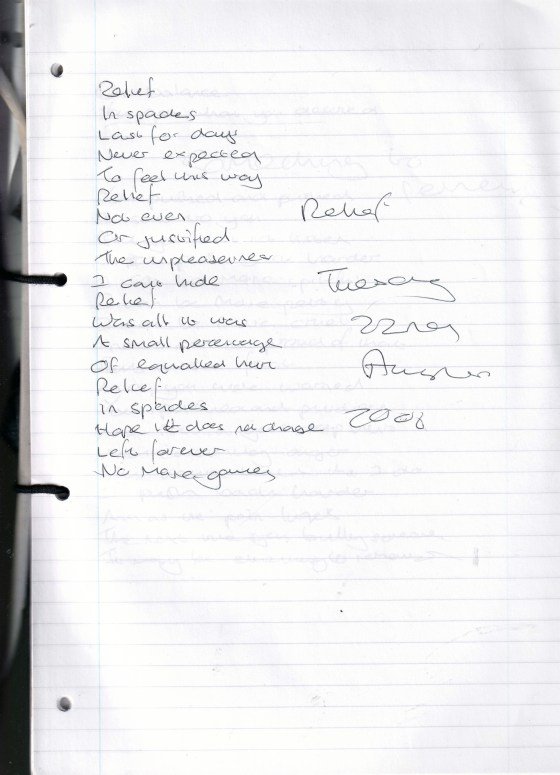 Relief
In spades
Last for days
Never expected
To feel this way
Relief
Not even
Or justified
The unpleasantness
I can't hide
Relief
Was all it was
A small percentage
Of equalled
Relief
in spades
Hope it does no change
Left forever
No More games
Relief
Tuesday
22nd
August
2006